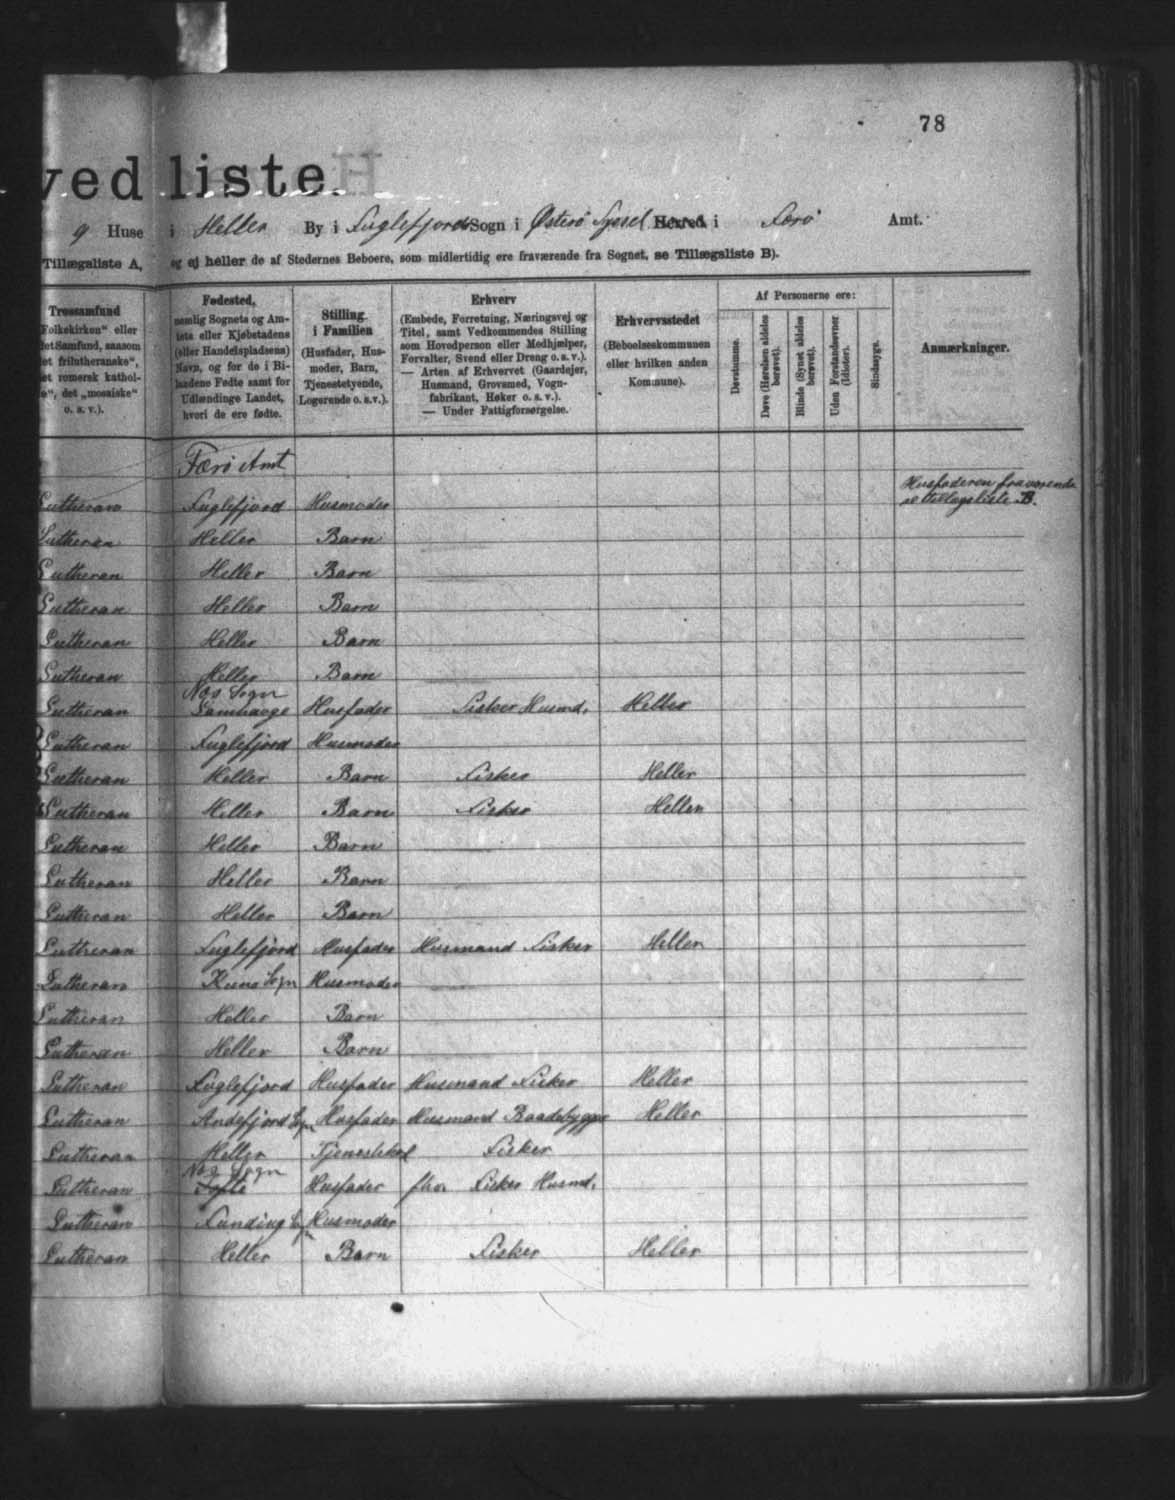 78
ved liste.
9 Huse i Heller By i Fuglefjords Sogn i Østerø Syssel Herred i Færø Amt.
Tillægsliste A, og ej heller de af Stedernes Beboere, som midlertidig ere fraværende fra Sognet, se Tillægsliste B).
Trossamfund
„Folkekirken" eller
det Samfund, saasom
det frilutheranske",
det romersk kathol-
", det „mosaiske"
o. s. v.).
Fødested,
nemlig Sognets og Am-
tets eller Kjøbstadens
(eller Handelspladsens)
Navn, og for de i Bi-
landene Fødte samt for
Udlændinge Landet,
hvori de ere fødte.
Stilling
i Familien
(Husfader, Hus-
moder, Barn,
Tjenestetyende,
Logerende o. s. v.).
Erhverv
(Embede, Forretning, Næringsvej og
Titel, samt Vedkommendes Stilling
som Hovedperson eller Medhjælper,
Forvalter, Svend eller Dreng o. s. v.).
— Arten af Erhvervet (Gaardejer,
Husmand, Grovsmed, Vogn-
fabrikant, Høker o. s. v.).
— Under Fattigforsørgelse.
Erhvervsstedet
(Beboelseskommunen
eller hvilken anden
Kommune).
Af Personerne ere:
Døvstumme.
Døve (Hørelsen aldeles
berøvet).
Blinde (Synet aldeles
berøvet).
Uden Forstandsevner
(Idioter).
Sindssyge.
Anmærkninger.
Færø Amt
Husfaderen fraværende
se tillægsliste B.
Lutheran Fuglefjord Husmoder
Lutheran Heller Barn
Lutheran Heller Barn
Lutheran Heller Barn
Lutheran Heller Barn
Lutheran Heller Barn
Næs Sogn
Lutheran Lamhauge Husfader Fisker Husmd. Heller
Lutheran Fuglefjord Husmoder
Lutheran Heller Barn Fisker Heller
Lutheran Heller Barn Fisker Heller
Lutheran Heller Barn
Lutheran Heller Barn
Lutheran Heller Barn
Lutheran Fuglefjord Husfader Husmand Fisker Heller
Lutheran Kunø Sogn Husmoder
Lutheran Heller Barn
Lutheran Heller Barn
Lutheran Fuglefjord Husfader Husmand Fisker Heller
Lutheran Andefjord Sogn Husfader Husmand Baadebygger Heller
Lutheran Heller Tjenestekarl Fisker
Næs Sogn
Lutheran Tofte Husfader Fisker Husmd.
Lutheran Funding Sogn Husmoder
Lutheran Heller Barn Fisker Heller